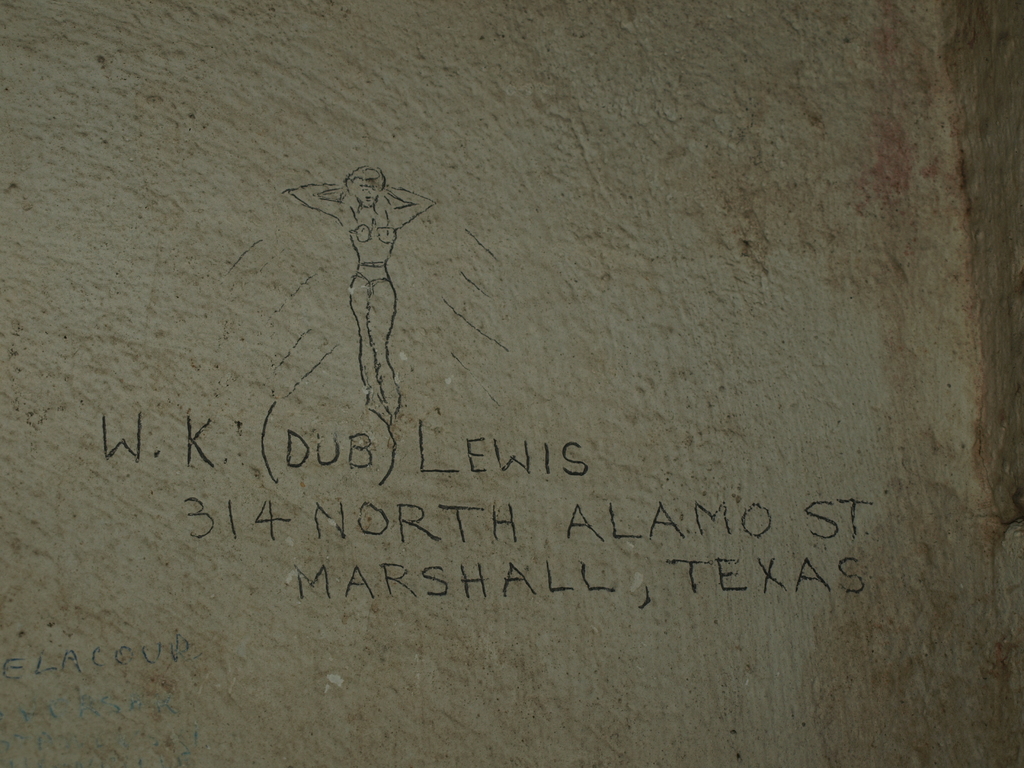 W. K. (DUB) LEWIS
314 NORTH ALAMO ST.
MARSHALL, TEXAS
ELACOUR